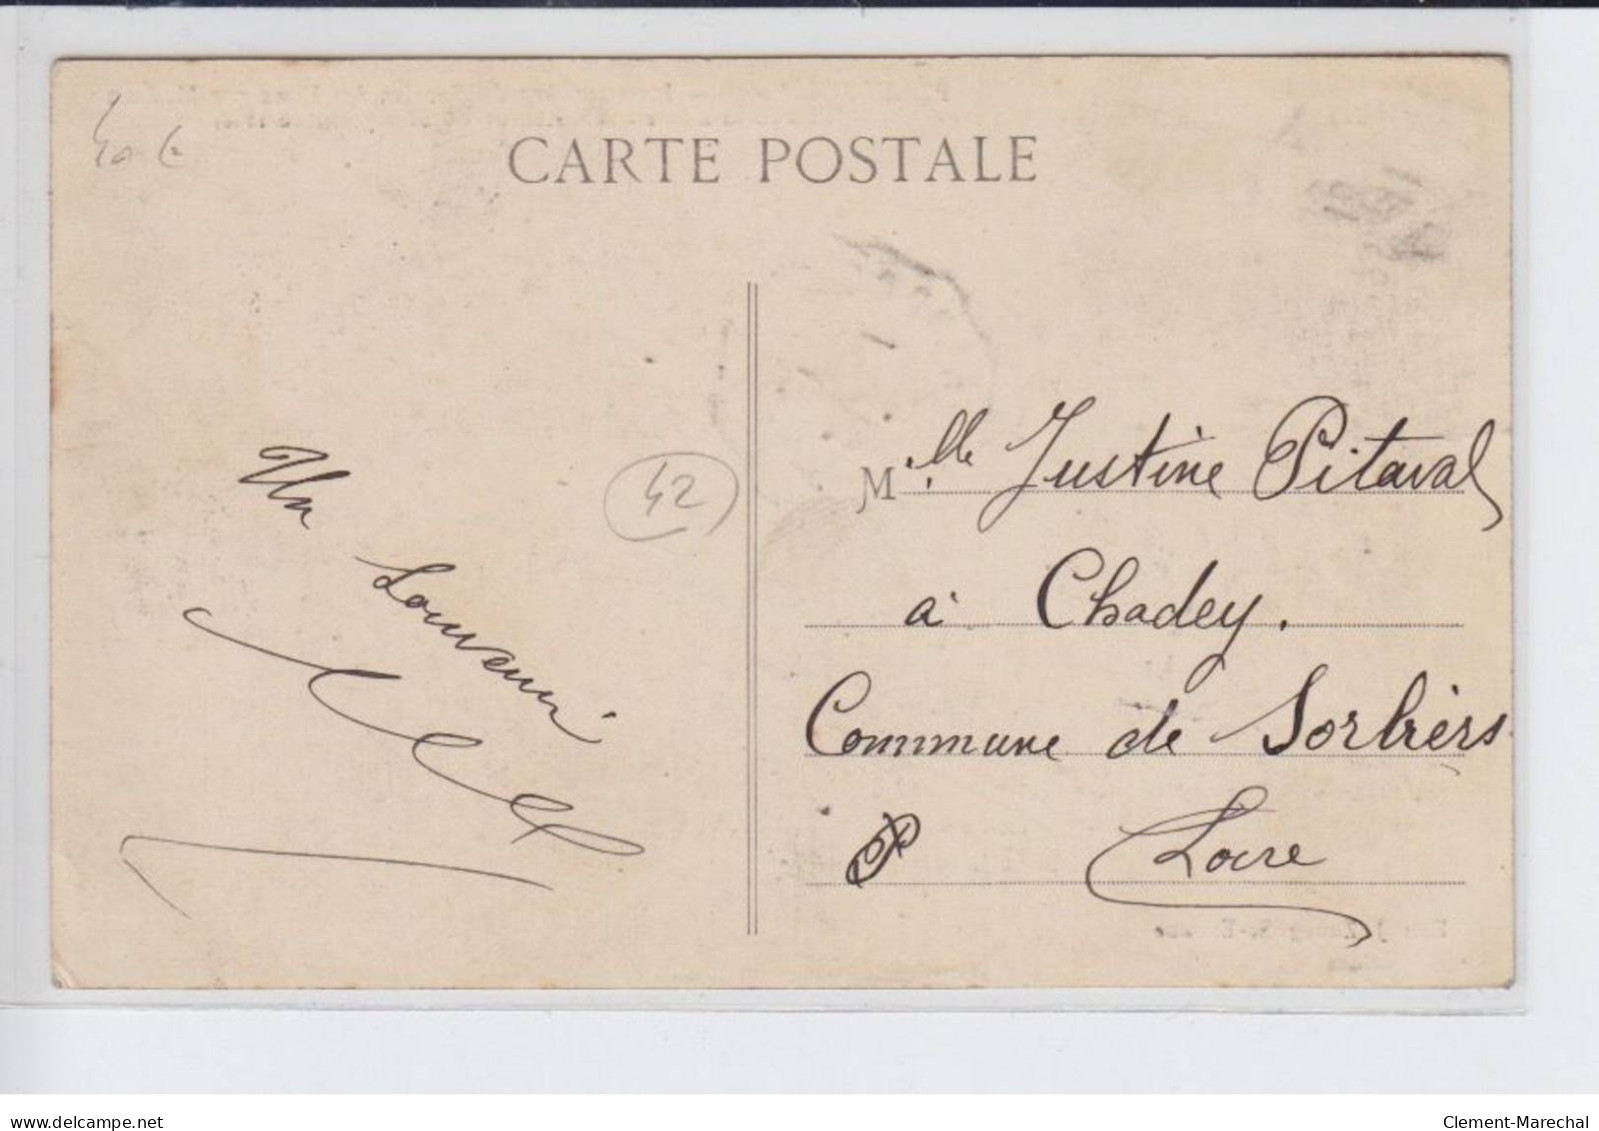 40 €
CARTE POSTALE
Un
Souvenir
42
Mlle Justine Pitaval
à Chadey.
Commune de Sorbièrs
Loire
www.delcampe.net
Clement-Marechal